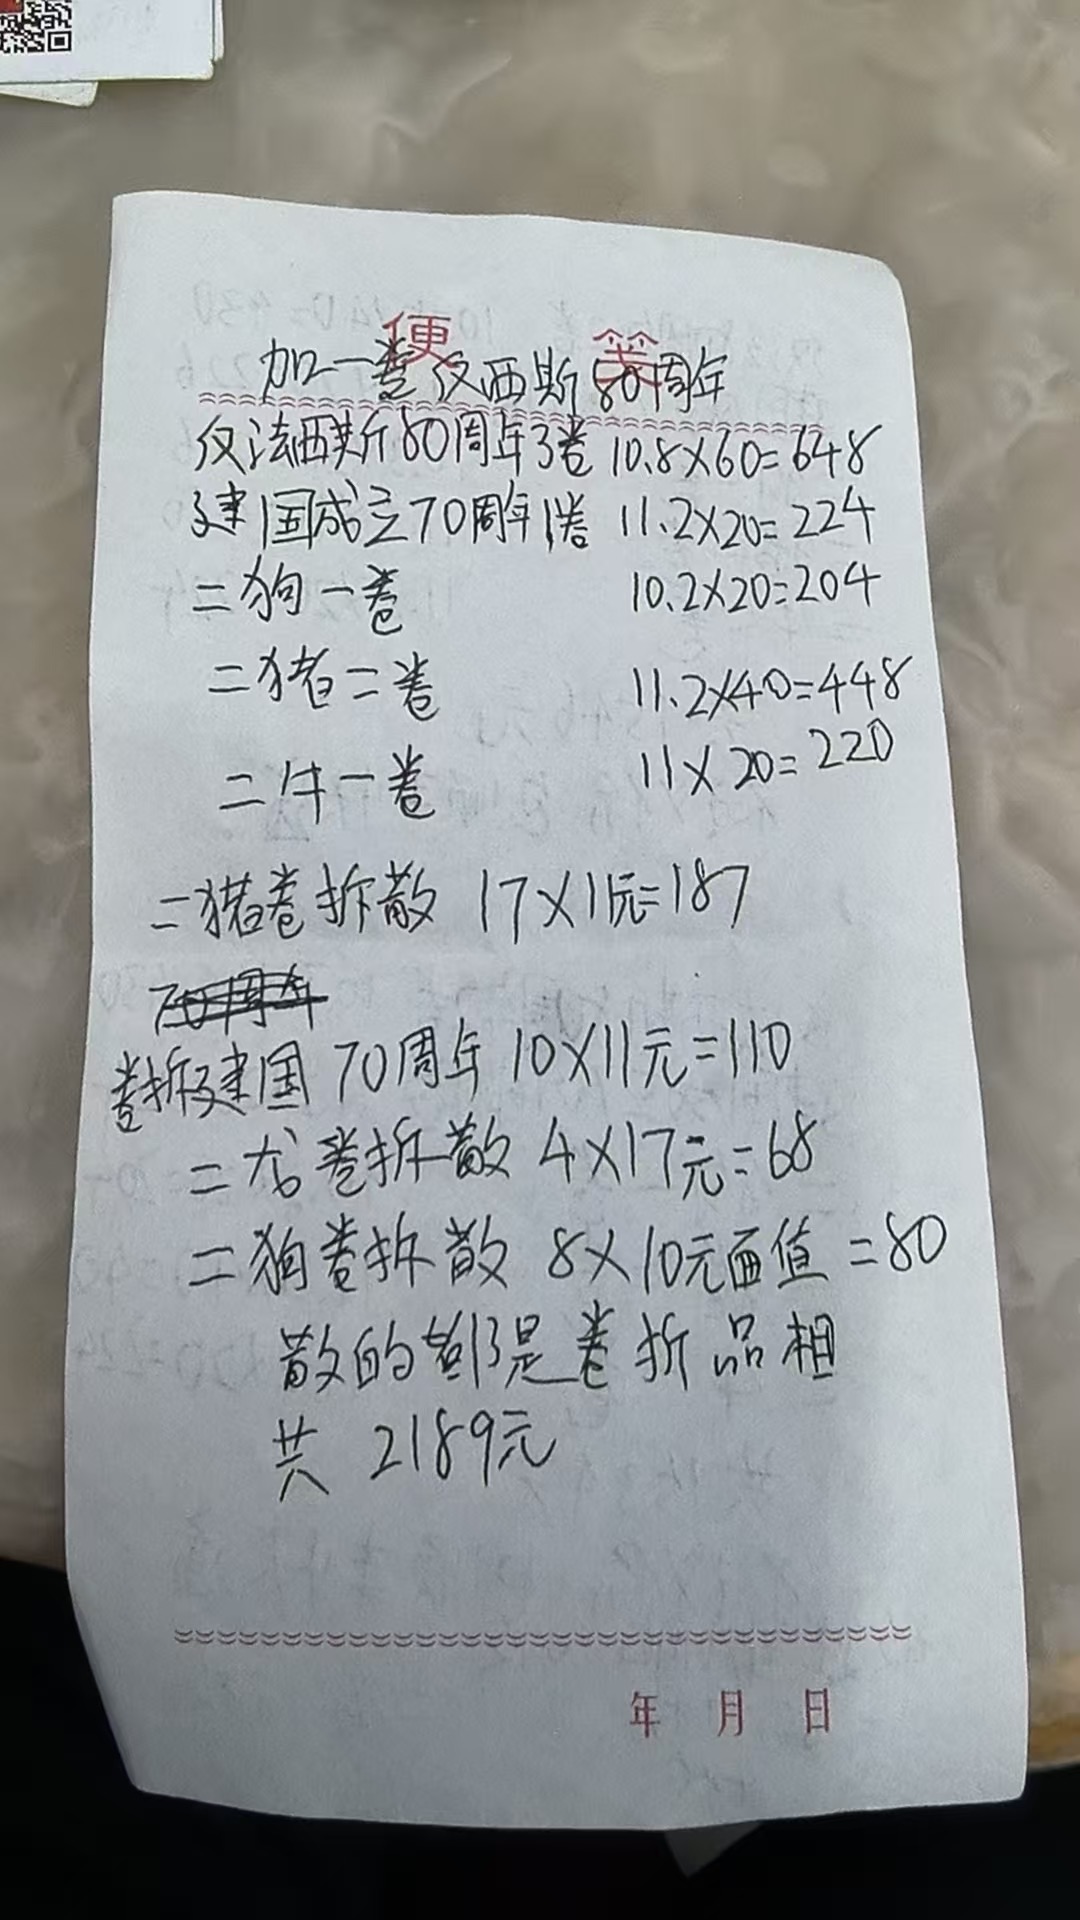 便笺
加一卷仅西斯80周年
仅法西斯80周年3卷 10.8×60=648
建国成立70周年1卷 11.2×20=224
二狗一卷 10.2×20=204
二猪二卷 11.2×40=448
二牛一卷 11×20=220
二猪卷拆散 17×11元=187
70周年
卷拆建国 70周年 10×11元=110
二龙卷拆散 4×17元=68
二狗卷拆散 8×10元面值=80
散的都是卷折品相
共 2189元
年 月 日